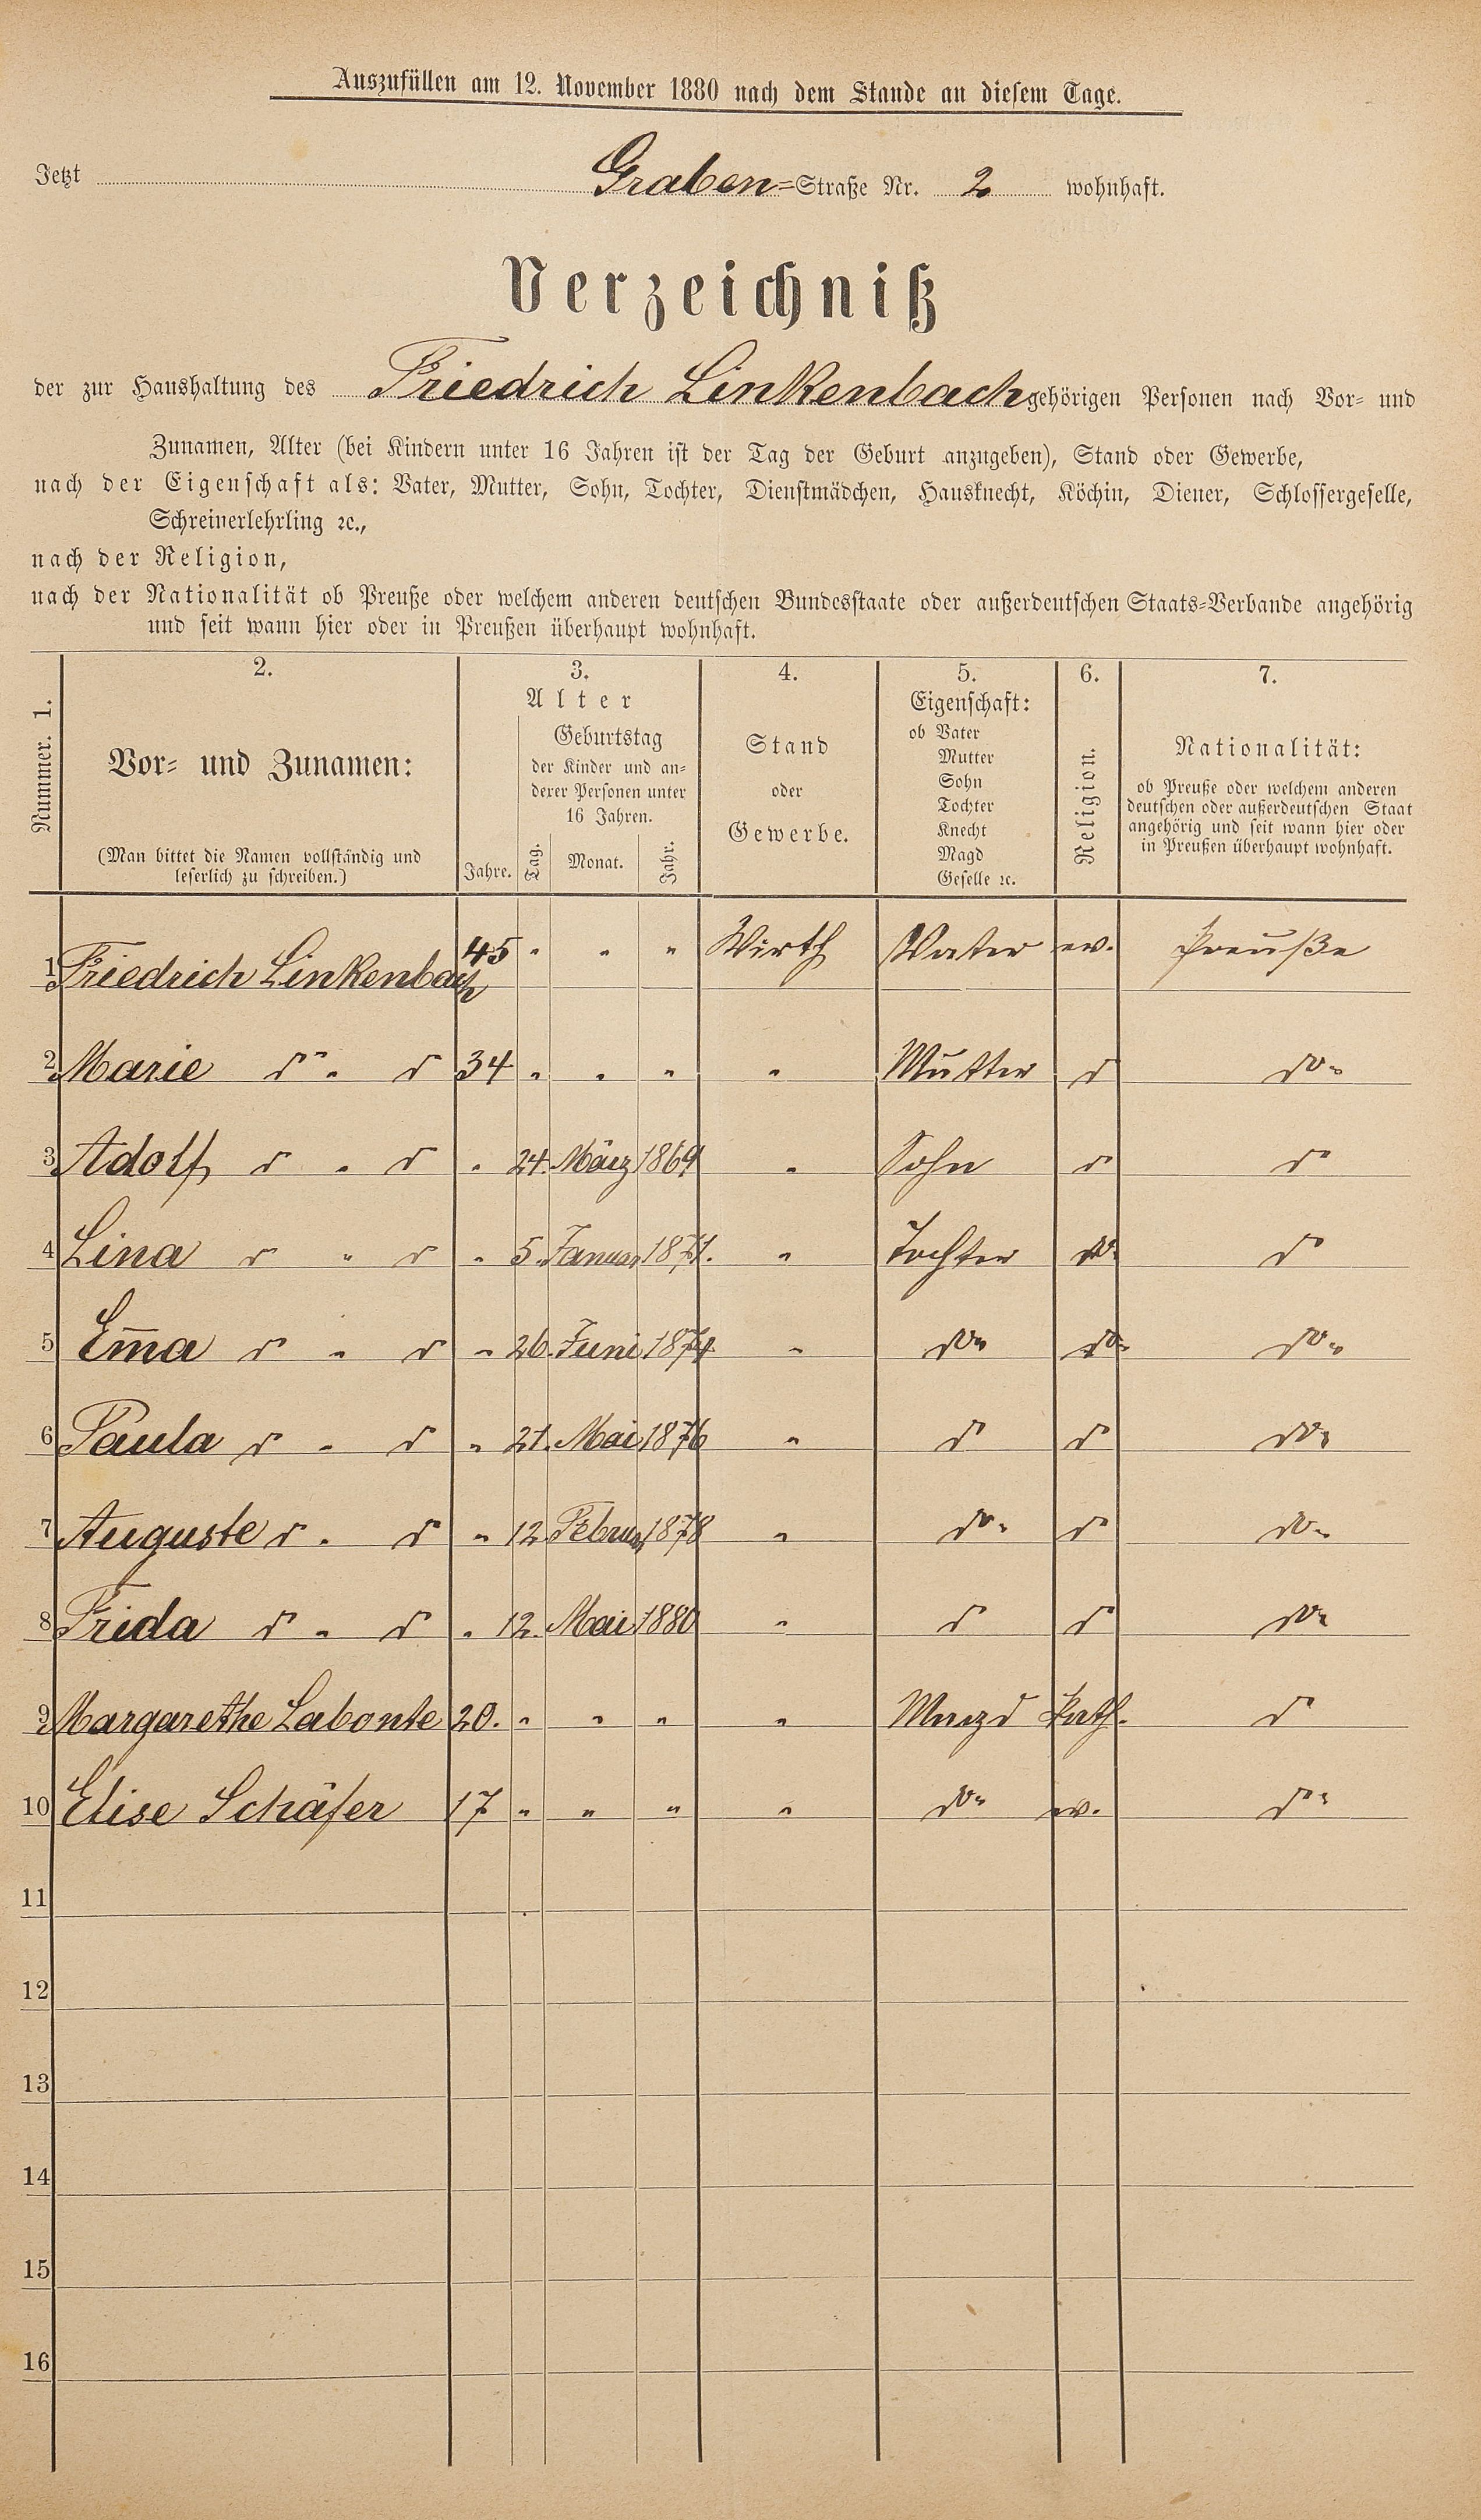 Auszufüllen am 12. November 1880 nach dem Stande an diesem Tage.
Jetzt Graben=Straße Nr. 2 wohnhaft.
Verzeichniß
der zur Haushaltung des Friedrich Linkenbach gehörigen Personen nach Vor= und
Zunamen, Alter (bei Kindern unter 16 Jahren ist der Tag der Geburt anzugeben), Stand oder Gewerbe,
nach der Eigenschaft als: Vater, Mutter, Sohn, Tochter, Dienstmädchen, Hausknecht, Köchin, Diener, Schlossergeselle,
Schreinerlehrling ꝛc.,
nach der Religion,
nach der Nationalität ob Preuße oder welchem anderen deutschen Bundesstaate oder außerdeutschen Staats=Verbande angehörig
und seit wann hier oder in Preußen überhaupt wohnhaft.
Nummer. 1.
2.
Vor= und Zunamen:
(Man bittet die Namen vollständig und
leserlich zu schreiben.)
3.
Alter
Jahre.
Geburtstag
der Kinder und an=
derer Personen unter
16 Jahren.
Tag. Monat. Jahr.
4.
Stand
oder
Gewerbe.
5.
Eigenschaft:
ob Vater
Mutter
Sohn
Tochter
Knecht
Magd
Geselle ꝛc.
6.
Religion.
7.
Nationalität:
ob Preuße oder welchem anderen
deutschen oder außerdeutschen Staat
angehörig und seit wann hier oder
in Preußen überhaupt wohnhaft.
1 Friedrich Linkenbach 45 " " " Wirth Vater ev. Preuße
2 Marie do " do 34 " " " " Mutter do do "
3 Adolf do " do " 24. März 1869 " Sohn do do
4 Lina do " do " 5. Januar 1871. " Tochter do do
5 Em̅a do " do " 26. Juni 1874 " do " do " do "
6 Paula do " do " 21. Mai 1876 " do do do "
7 Auguste do " do " 12. Februar 1878 " do " do do "
8 Frida do " do " 12. Mai 1880 " do do do "
9 Margarethe Labonte 20. " " " " Magd kath. do
10 Elise Schäfer 17 " " " " do " ev. do "
11
12
13
14
15
16